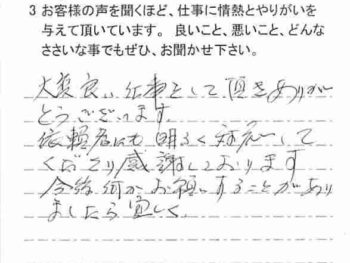 3 お客様の声を聞くほど、仕事に情熱とやりがいを
与えて頂いています。良いこと、悪いこと、どんな
ささいな事でもぜひ、お聞かせ下さい。
大変良い仕事をして頂きありが
とうございます。
依頼者にも明るく対応して
くださり感謝しております
今後何かお願いすることがあり
ましたら宜しく